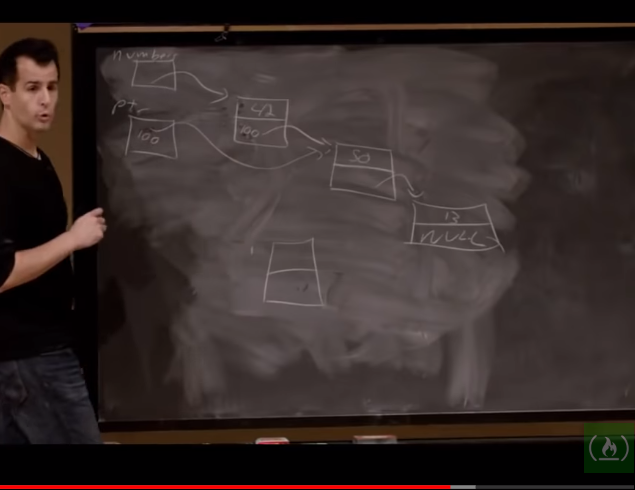 numbers
ptr
42
100
100
50
13
NULL